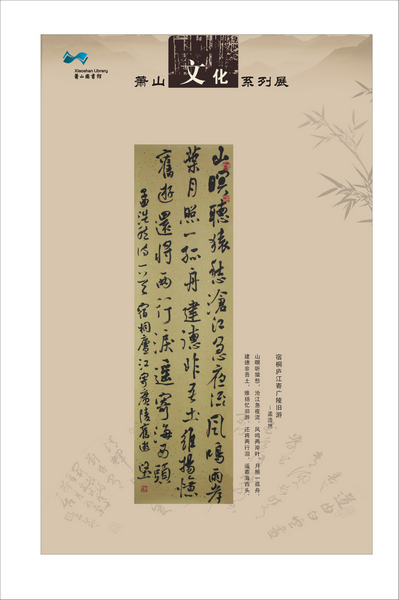 Xiaoshan Library
萧山图书馆
萧山文化系列展
山暝聽猿愁滄江急夜流風鳴兩岸
葉月照一孤舟建德非吾土維揚憶
舊遊還將兩行淚遥寄海西頭
孟浩然詩一首宿桐廬江寄廣陵舊遊
宿桐庐江寄广陵旧游
—孟浩然
山暝听猿愁，沧江急夜流。风鸣两岸叶，月照一孤舟。
建德非吾土，维扬忆旧游。还将两行泪，遥寄海西头。